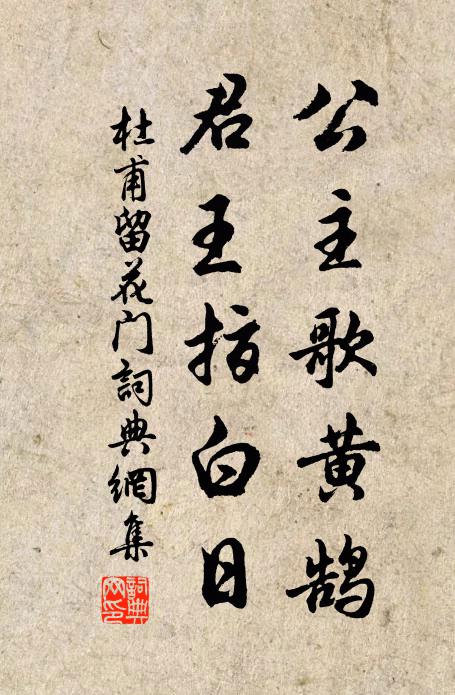 公主歌黄鹄
君王指白日
杜甫留花门詞典網集
詞典
网印